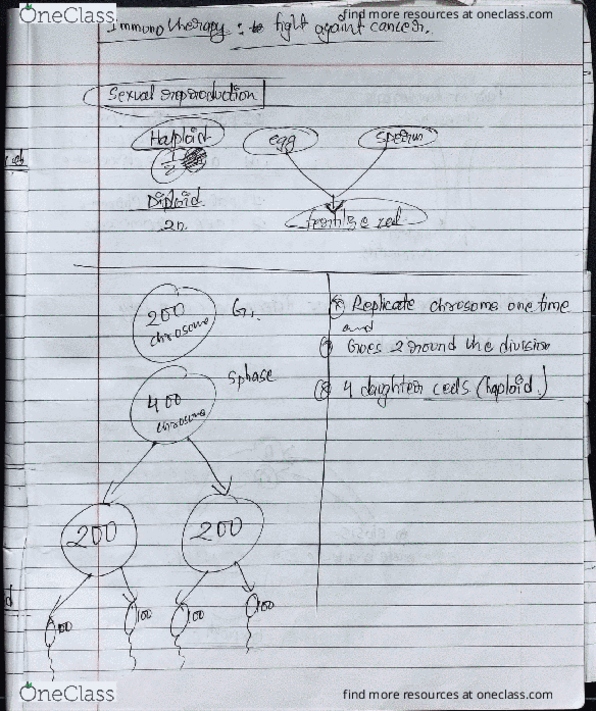 OneClass
find more resources at oneclass.com
Immunotherapy : to fight againt cancer.
Sexual reproduction
Haploid egg sperm
Diploid
2n.
200 chrosome G1
(*) Replicate chrosome one time
and
Goes 2 round the division
S phase
(*) 4 daughter cells (haploid.)
400 chrosome
200 200
100 100 100 100
OneClass
find more resources at oneclass.com